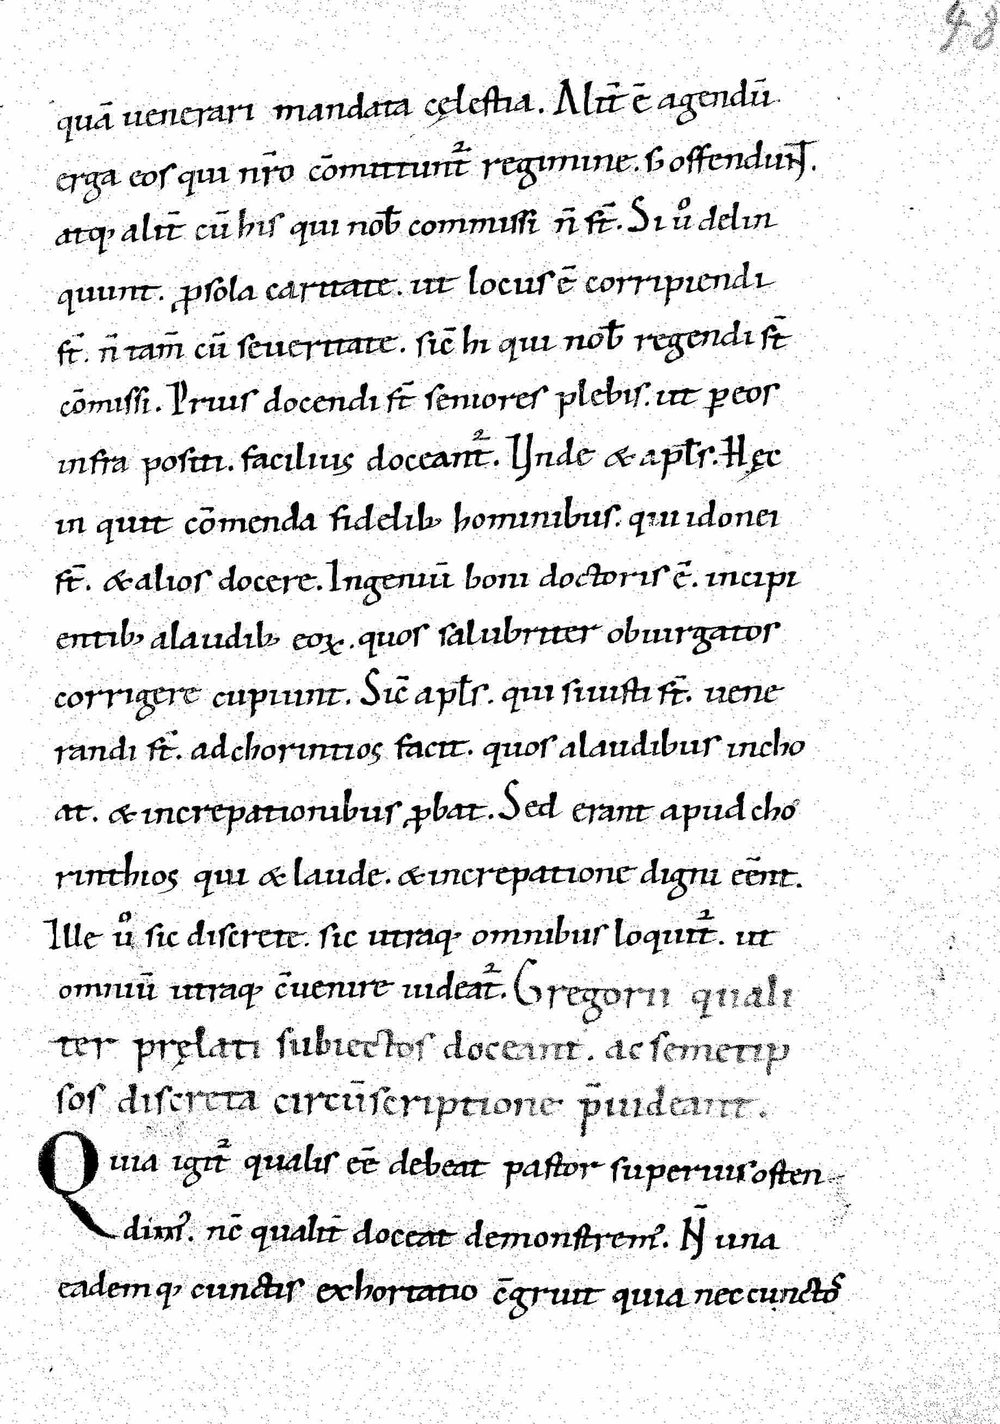 48
quā uenerari mandata cęlestia. Alit̄ ē agendū
erga eos qui nr̄o cōmittunt᷑ regimine. s̄ offendunt̄.
atq; alit̄ cū his qui nob̄ commissi n̄ st̄. Si ůo delin
quunt. ꝓ sola caritate. ut locus ē corripiendi
st̄. n̄ tam̄ cū seueritate. sic̄ hi qui nob̄ regendi st̄
cōmissi. Prius docendi st̄ seniores plebis. ut ꝑ eos
infra positi. facilius doceant᷑. Unde & apl̄s. Hęc
in quit cōmenda fidelib; hominibus. qui idonei
st̄. & alios docere. Ingeniū boni doctoris ē. incipi
entib; a laudib; eoꝝ. quos salubriter obiurgatos
corrigere cupiunt. Sic̄ apl̄s. qui siuisti st̄. uene
randi st̄. ad chorintios facit. quos a laudibus incho
at. & increpationibus ꝓbat. Sed erant apud cho
rinthios qui & laude. & increpatione digni eēnt.
Ille ůo sic discrete. sic utraq; omnibus loquit᷑. ut
omniū utraq; c̄uenire uideat᷑. Gregorii quali
ter pręlati subiectos doceant. ac semetip
sos discreta circūscriptione p̄uideant.
Quia igit᷑ qualis eē debeat pastor superius osten
dim᷒. nc̄ qualit̄ doceat demonstrem᷒. N̄ una
eademq; cunctis exhortatio c̄gruit quia nec cunctos